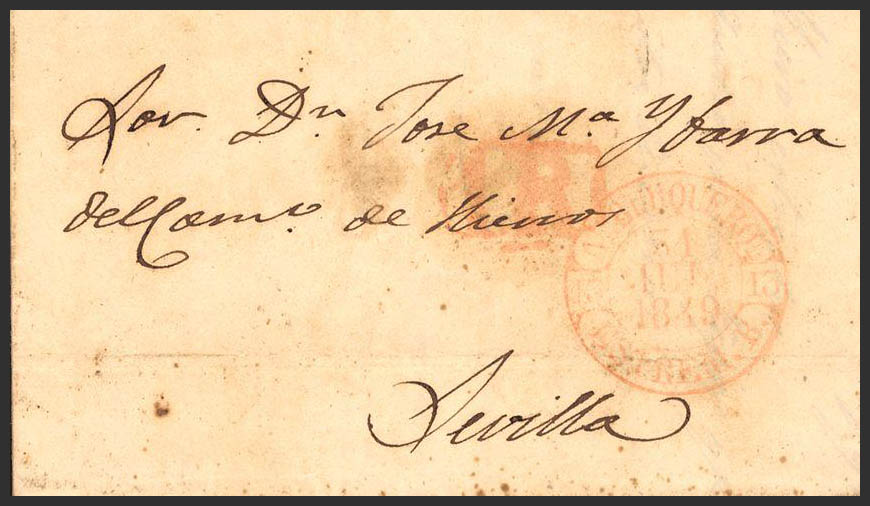 Sor. Dn Jose Ma Ybarra
del Como. de Hierros
1R
ALBURQUERQUE
31
JUL
1849
13 13
ESTREM. B.
Sevilla